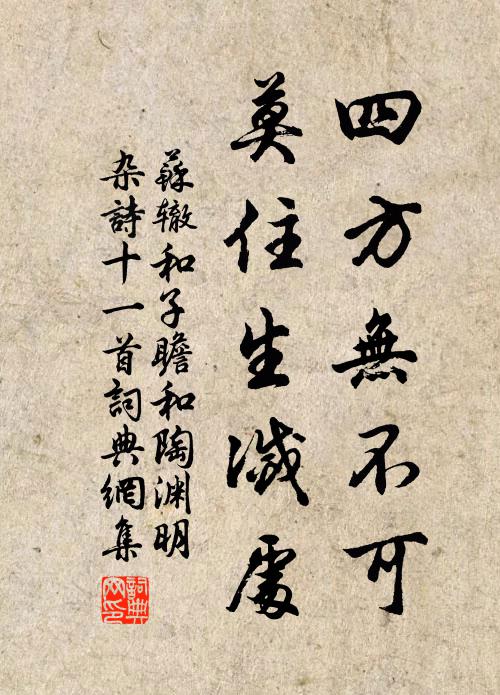 四方無不可
莫住生滅處
蘇辙和子瞻和陶渊明
杂詩十一首詞典網集
詞典
网印